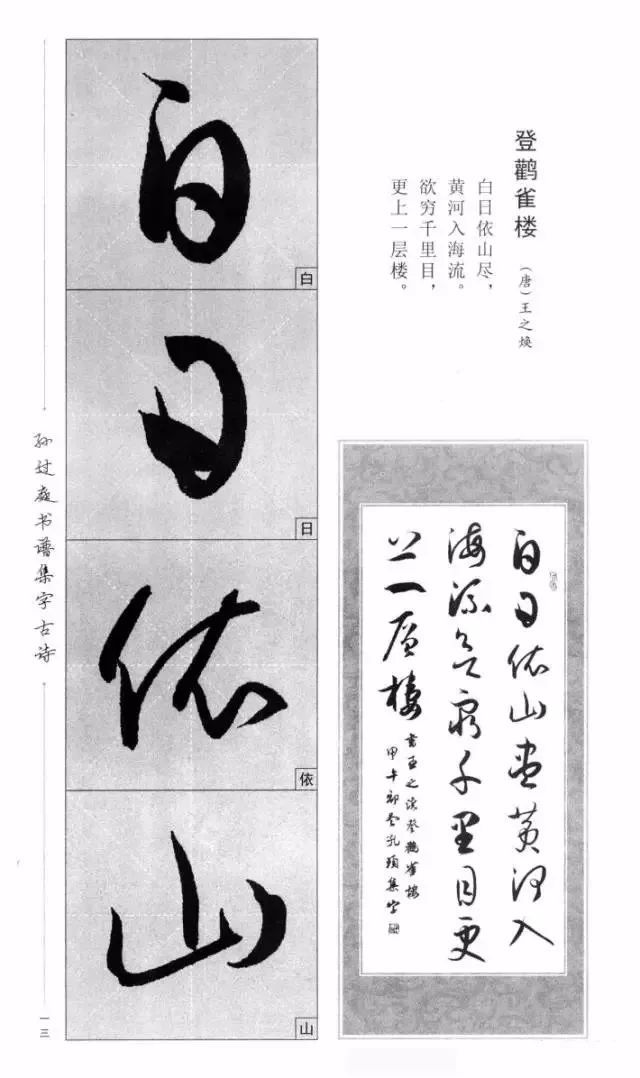 登鹳雀楼
（唐）王之焕
白日依山尽，
黄河入海流。
欲穷千里目，
更上一层楼。
白日依山尽黄河入
海流欲穷千里目更
上一层楼
书王之涣登鹳雀楼
集字
白
白
日
日
依
依
山
山
孙过庭书谱集字古诗
一三